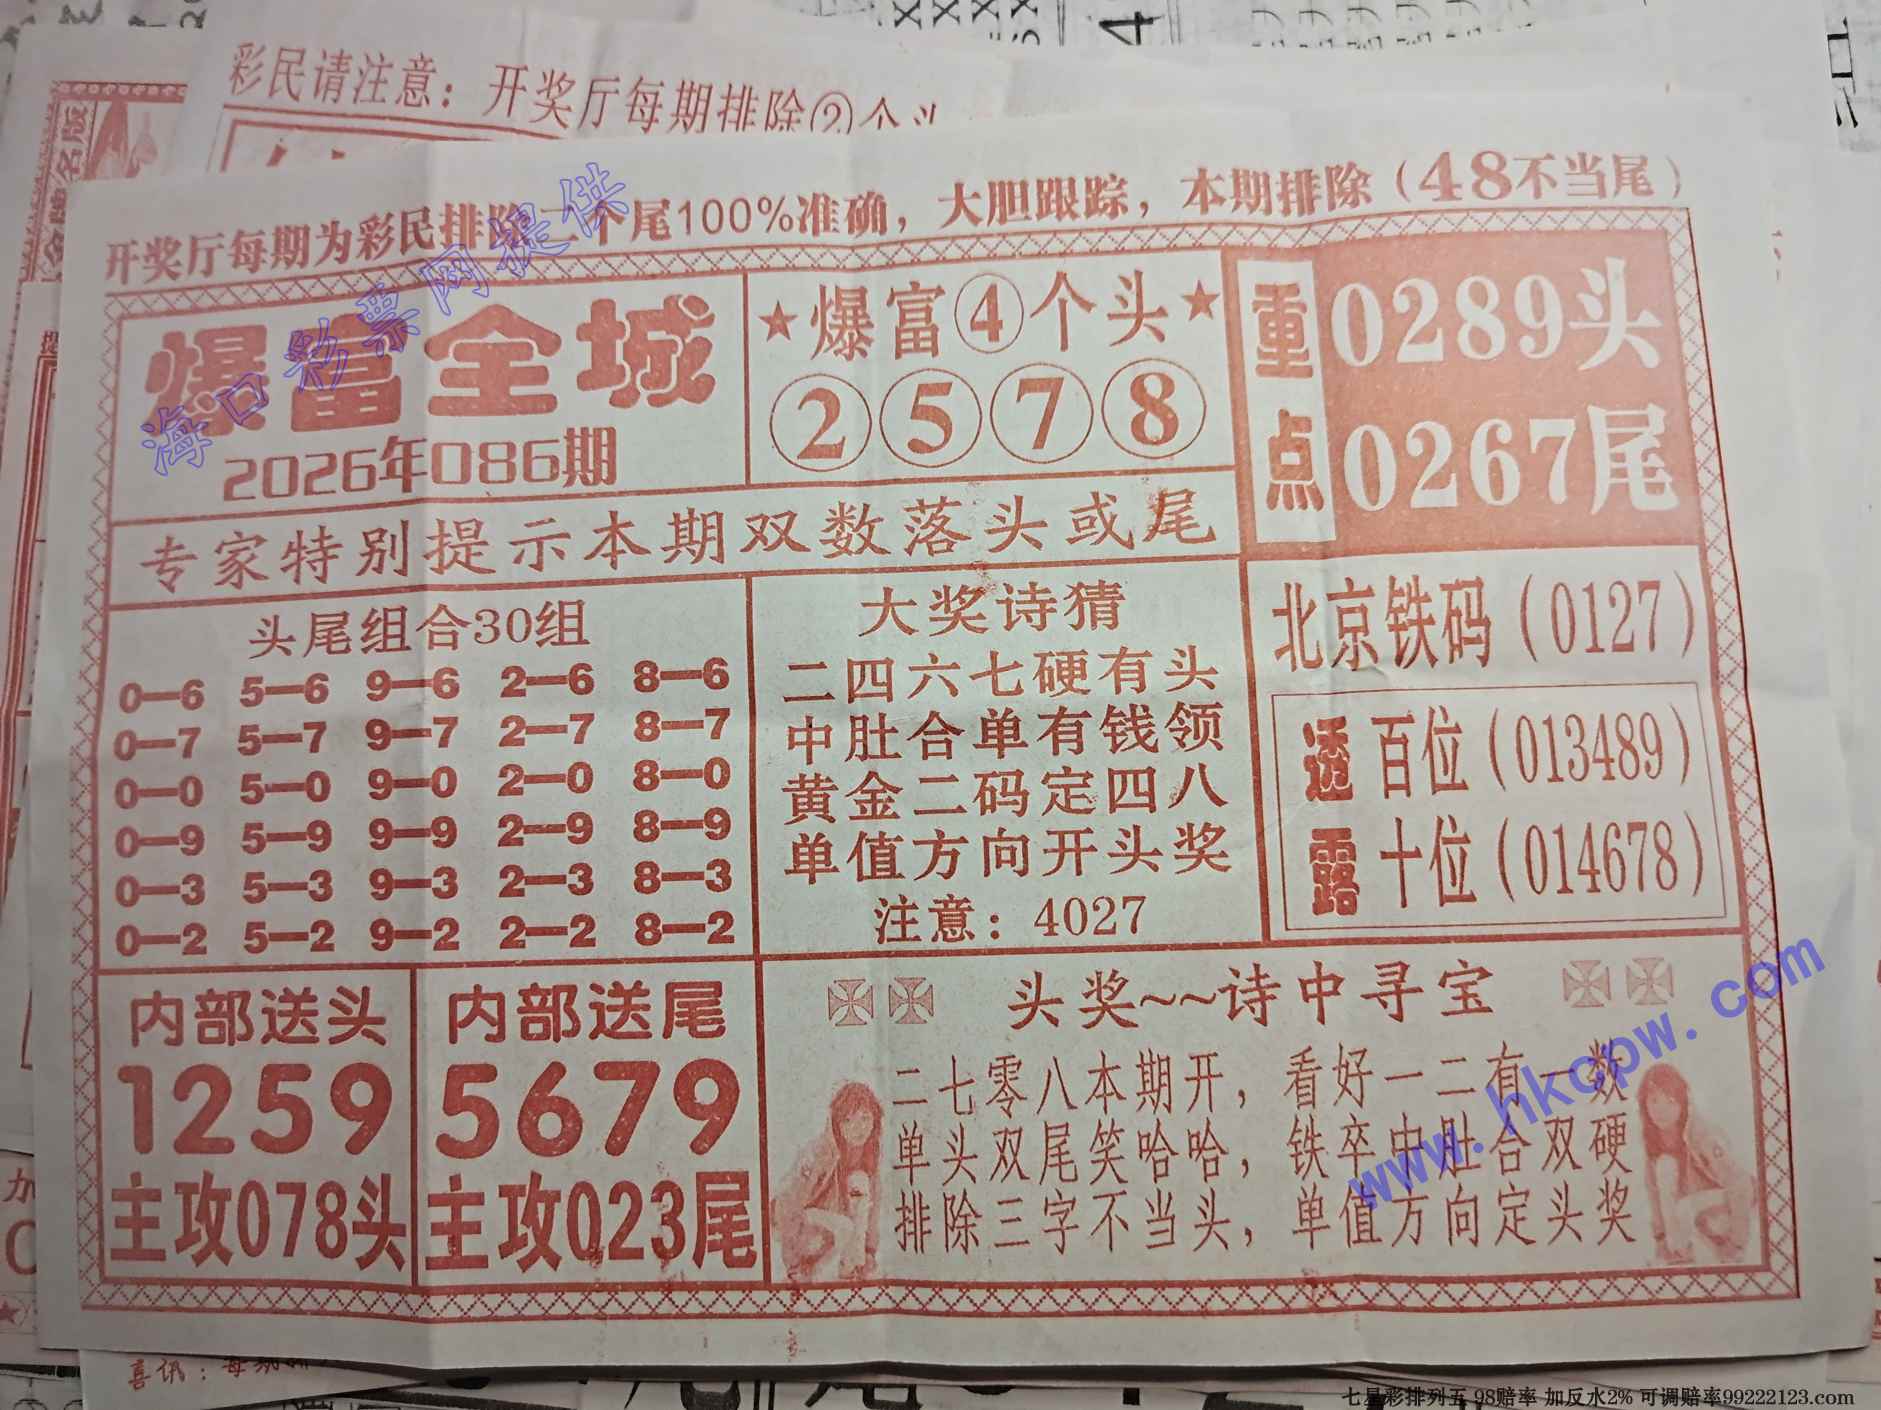 彩民请注意：开奖厅每期排除②个头
开奖厅每期为彩民排除二个尾100%准确，大胆跟踪，本期排除（48不当尾）
爆富全城
2026年086期
★爆富④个头★
②⑤⑦⑧
重点
0289头
0267尾
专家特别提示本期双数落头或尾
头尾组合30组
0—6 5—6 9—6 2—6 8—6
0—7 5—7 9—7 2—7 8—7
0—0 5—0 9—0 2—0 8—0
0—9 5—9 9—9 2—9 8—9
0—3 5—3 9—3 2—3 8—3
0—2 5—2 9—2 2—2 8—2
大奖诗猜
二四六七硬有头
中肚合单有钱领
黄金二码定四八
单值方向开头奖
注意：4027
北京铁码（0127）
透露
百位（013489）
十位（014678）
内部送头
1259
主攻078头
内部送尾
5679
主攻023尾
头奖~~诗中寻宝
二七零八本期开，看好一二有一数
单头双尾笑哈哈，铁卒中肚合双硬
排除三字不当头，单值方向定头奖
海口彩票网提供
www.hkcpw.com
喜讯：每
七星彩排列五 98赔率 加反水2% 可调赔率99222123.com